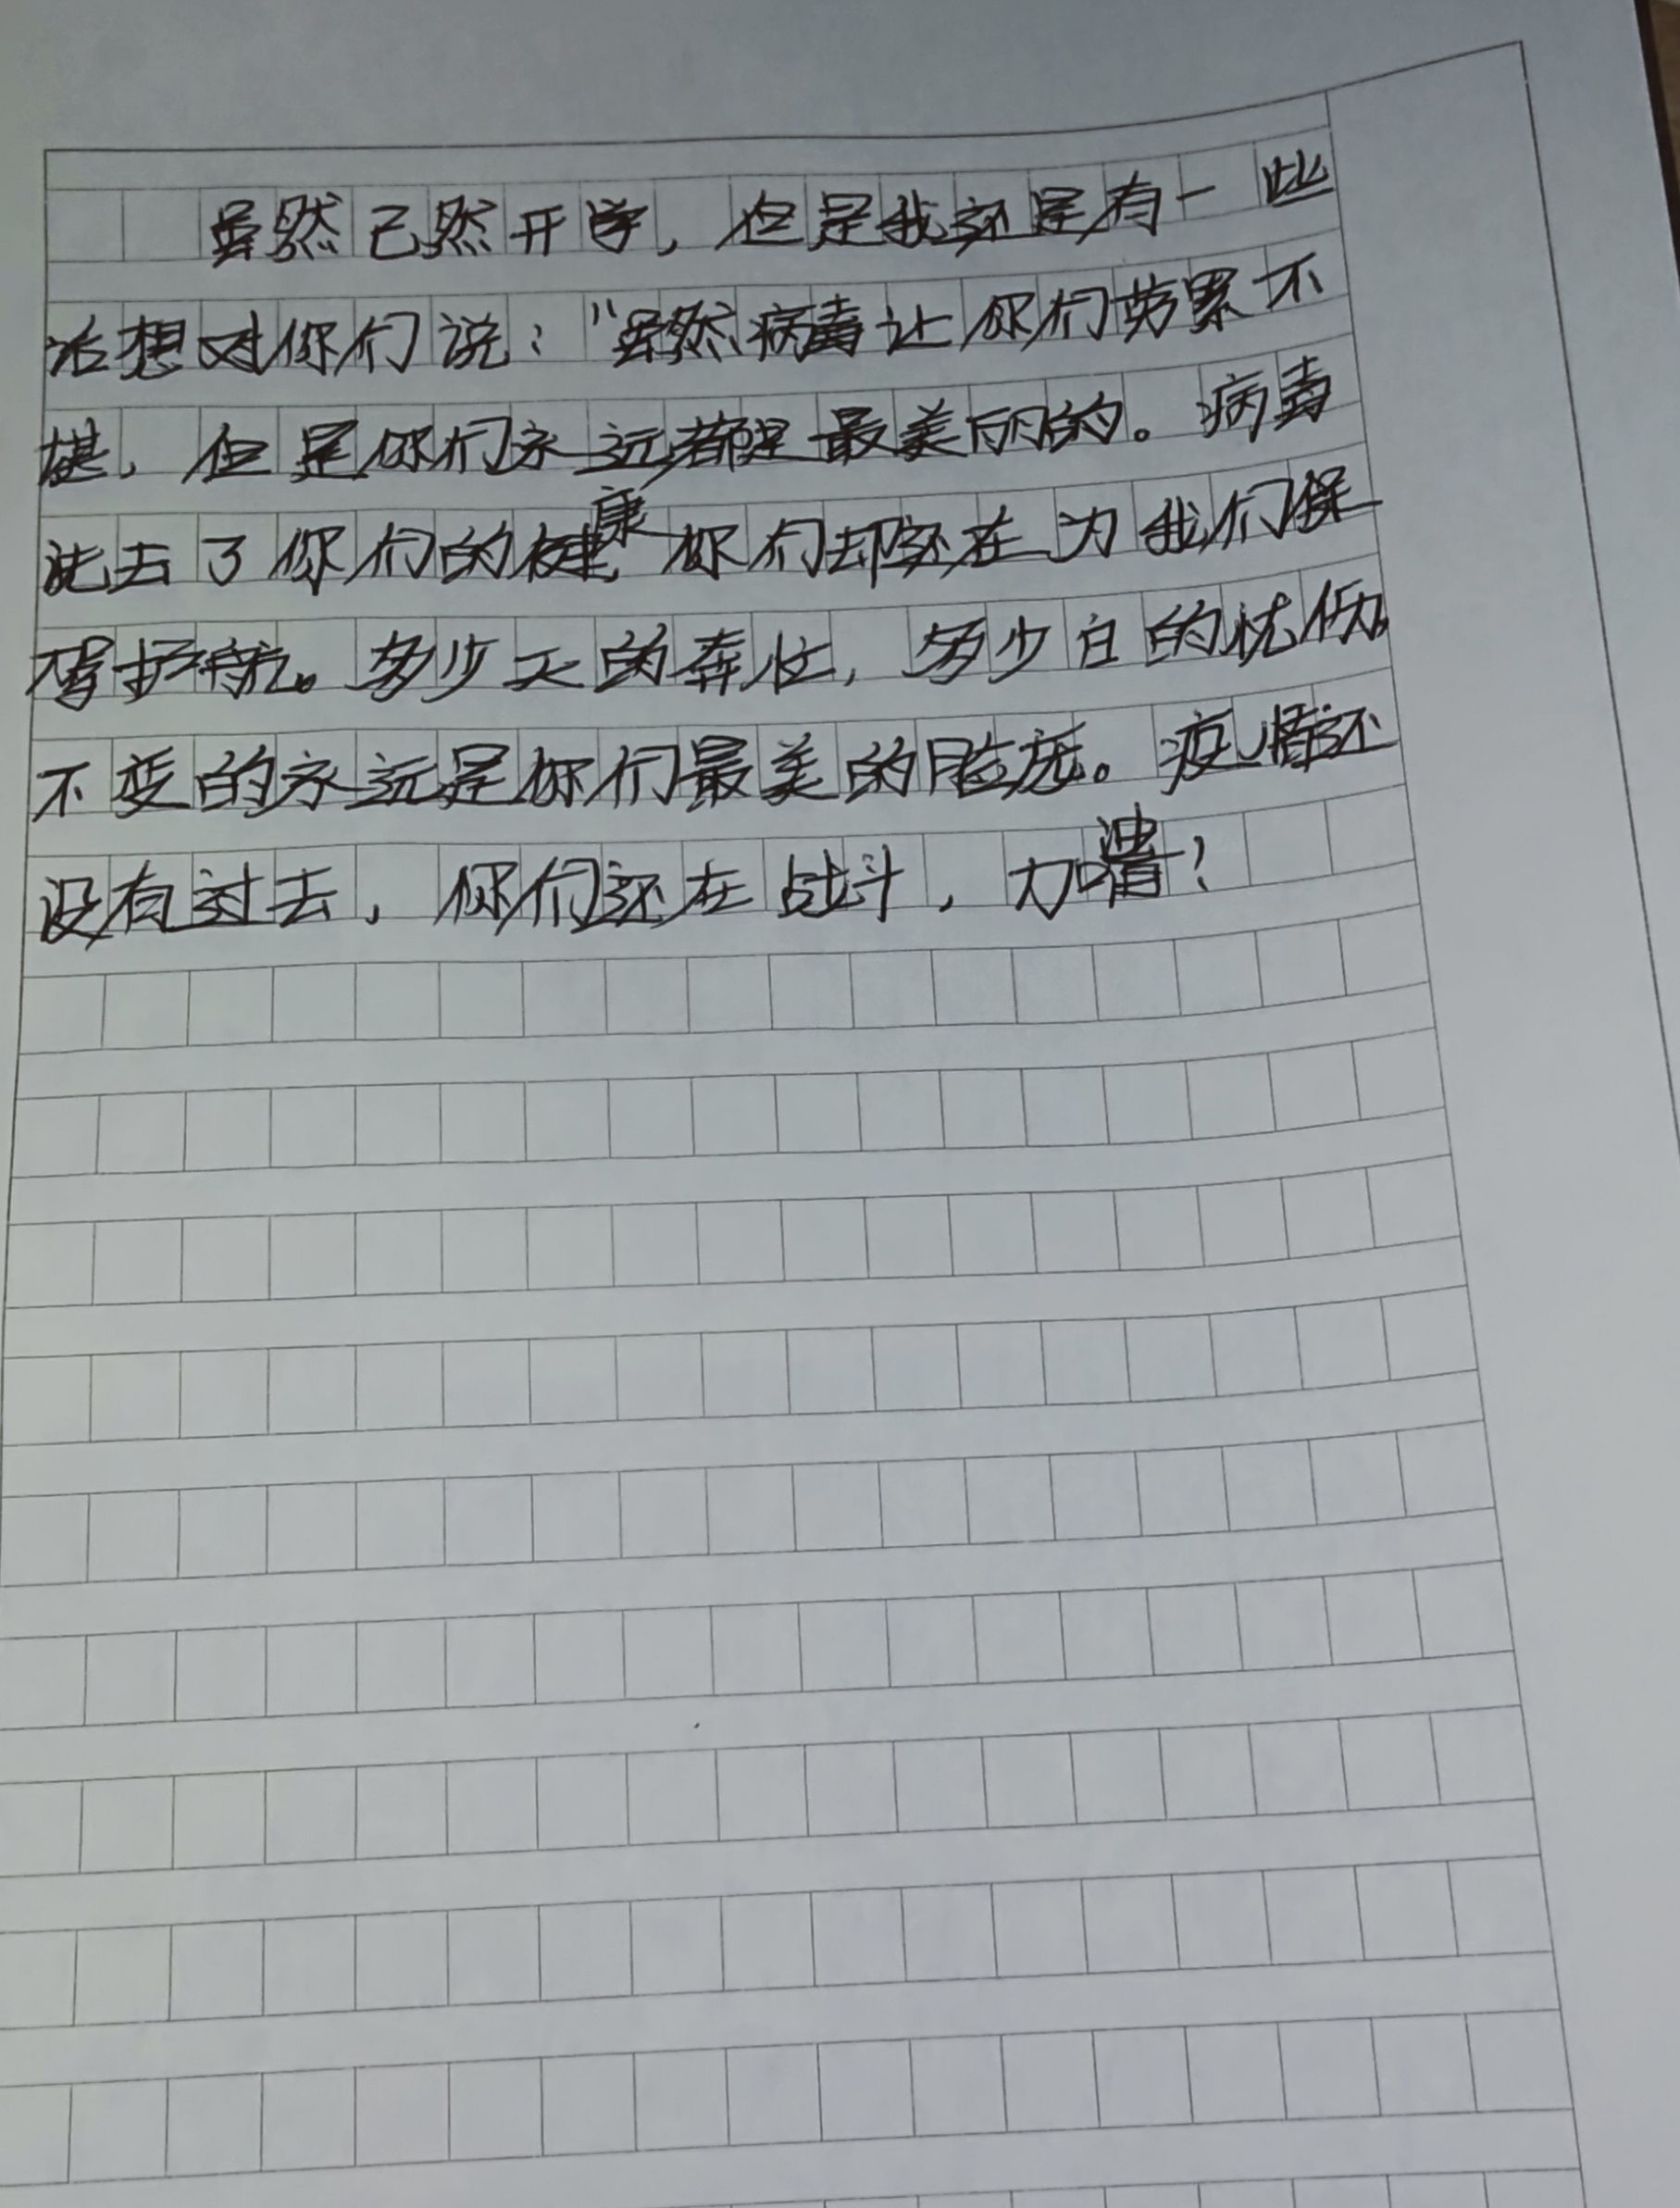 虽然已然开学，但是我还是有一些
话想对你们说：“虽然病毒让你们劳累不
堪，但是你们永远都是最美丽的。病毒
洗去了你们的健康，你们却还在为我们保
驾护航。多少天的奔忙，多少白的忧伤，
不变的永远是你们最美的脸庞。疫情还
没有过去，你们还在战斗，加油！